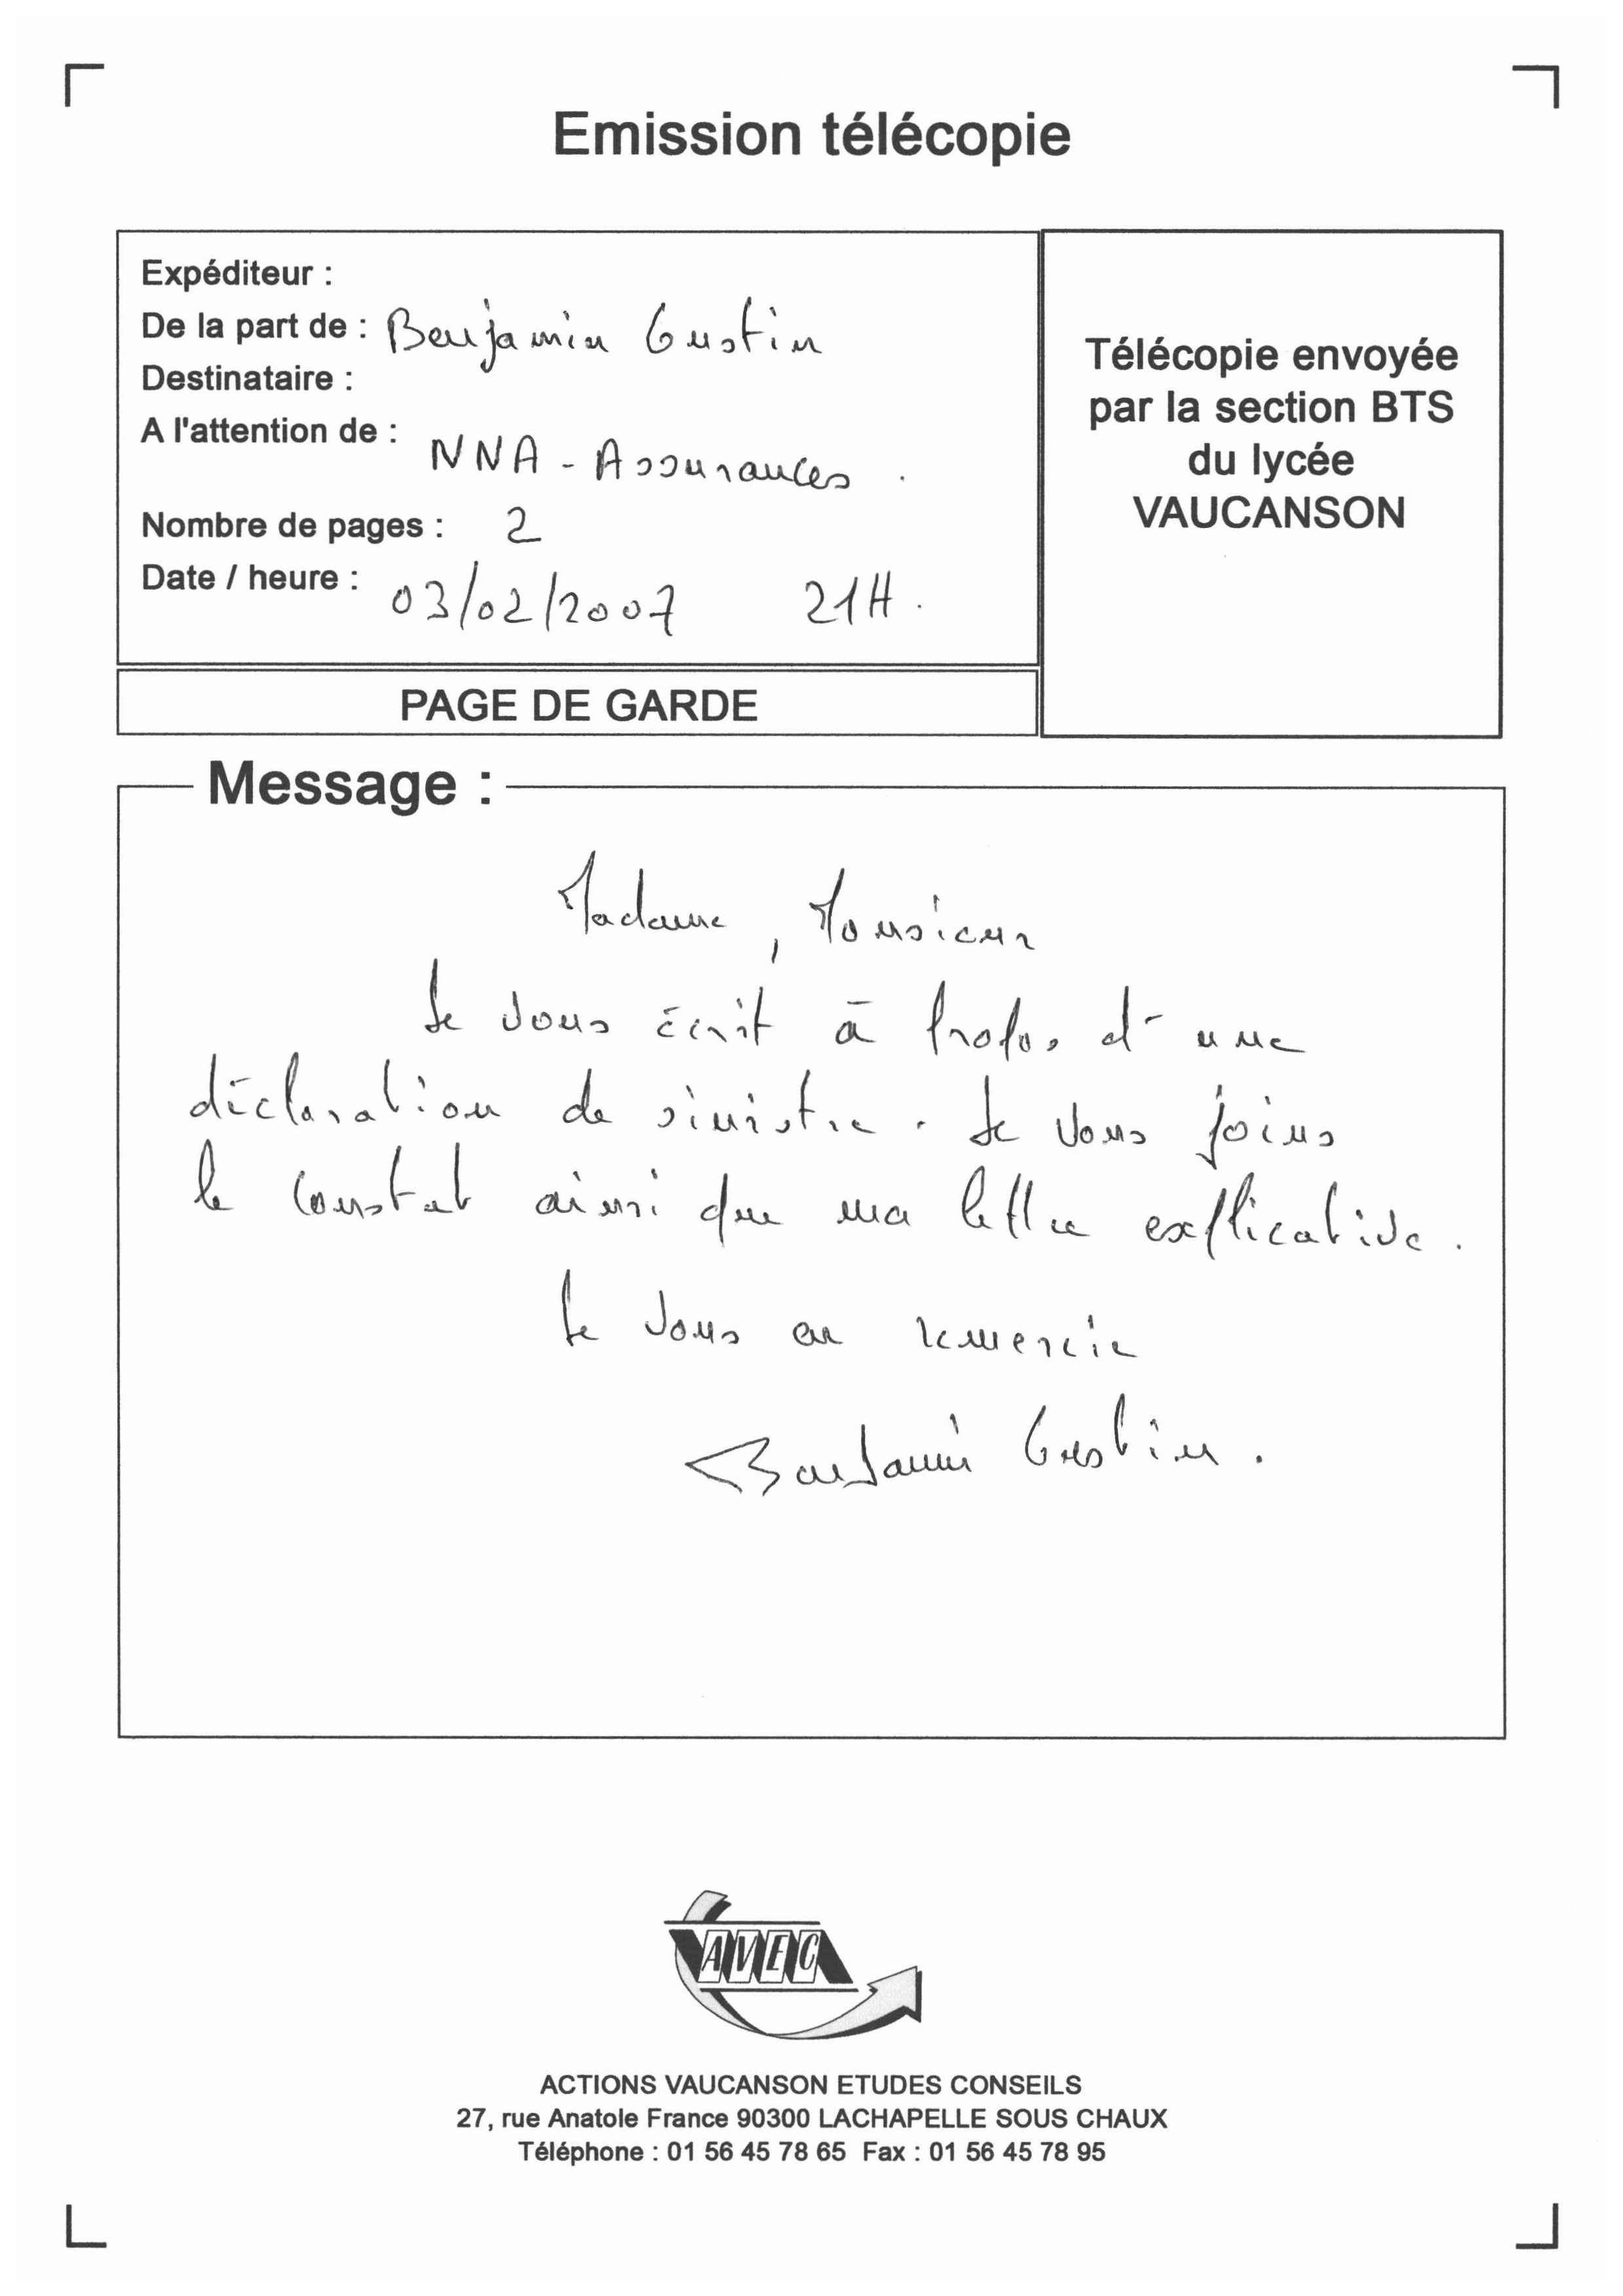 Emission télécopie
Expéditeur :
De la part de : Benjamin Gustin
Destinataire :
A l'attention de : NNA - Assurances .
Nombre de pages : 2
Date / heure : 03/02/2007 21H .
Télécopie envoyée
par la section BTS
du lycée
VAUCANSON
PAGE DE GARDE
Message :
Madame, Monsieur
Je vous écrit à propos d'une
déclaration de sinistre . Je vous joins
le constat ainsi que ma lettre explicative .
Je vous en remercie
Benjamin Gustin .
AVEC
ACTIONS VAUCANSON ETUDES CONSEILS
27, rue Anatole France 90300 LACHAPELLE SOUS CHAUX
Téléphone : 01 56 45 78 65 Fax : 01 56 45 78 95